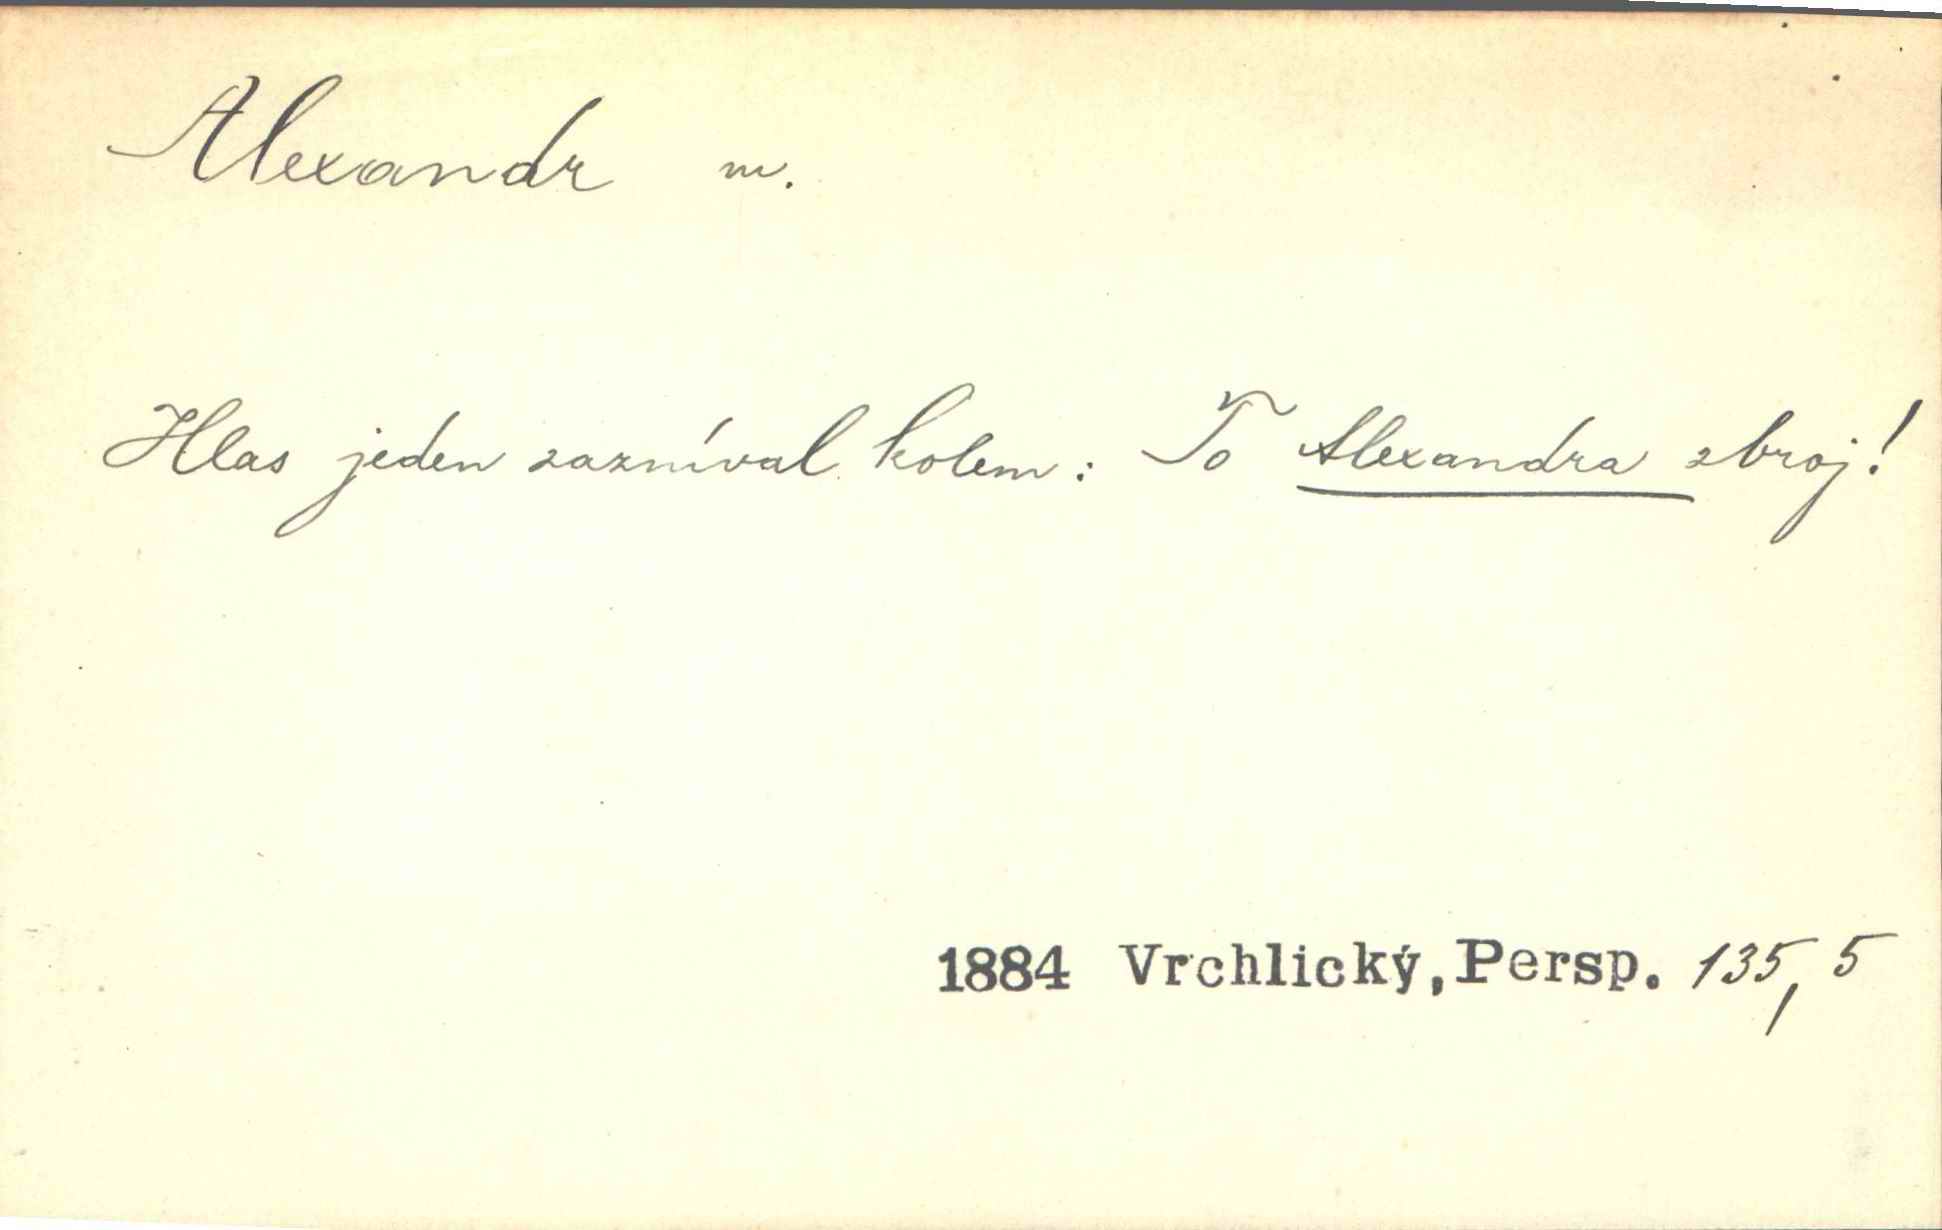 Alexandr m.
Hlas jeden zazníval kolem: To Alexandra zbroj!
1884 Vrchlický, Persp. 135, 5